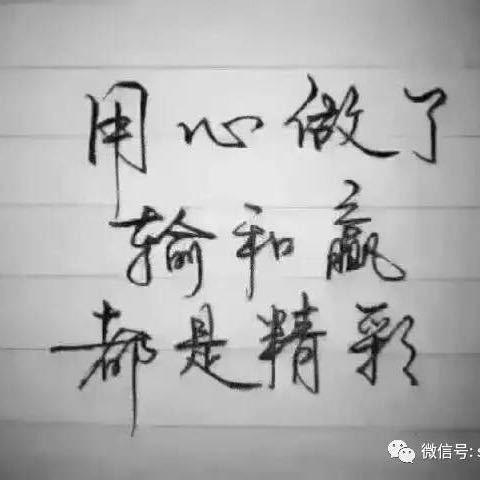 用心做了
输和赢
都是精彩
微信号: s